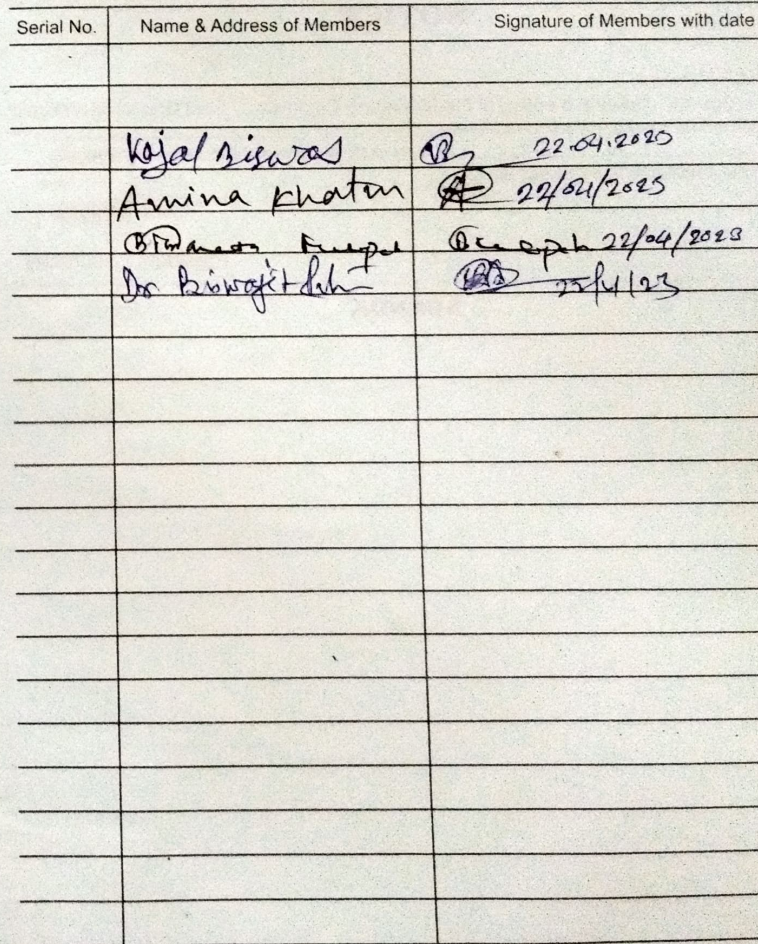 Serial No. Name & Address of Members Signature of Members with date
Kajal Biswas 22.04.2023
Amina Khatun 22/04/2023
22/04/2023
Dr Biswajit 22/4/23